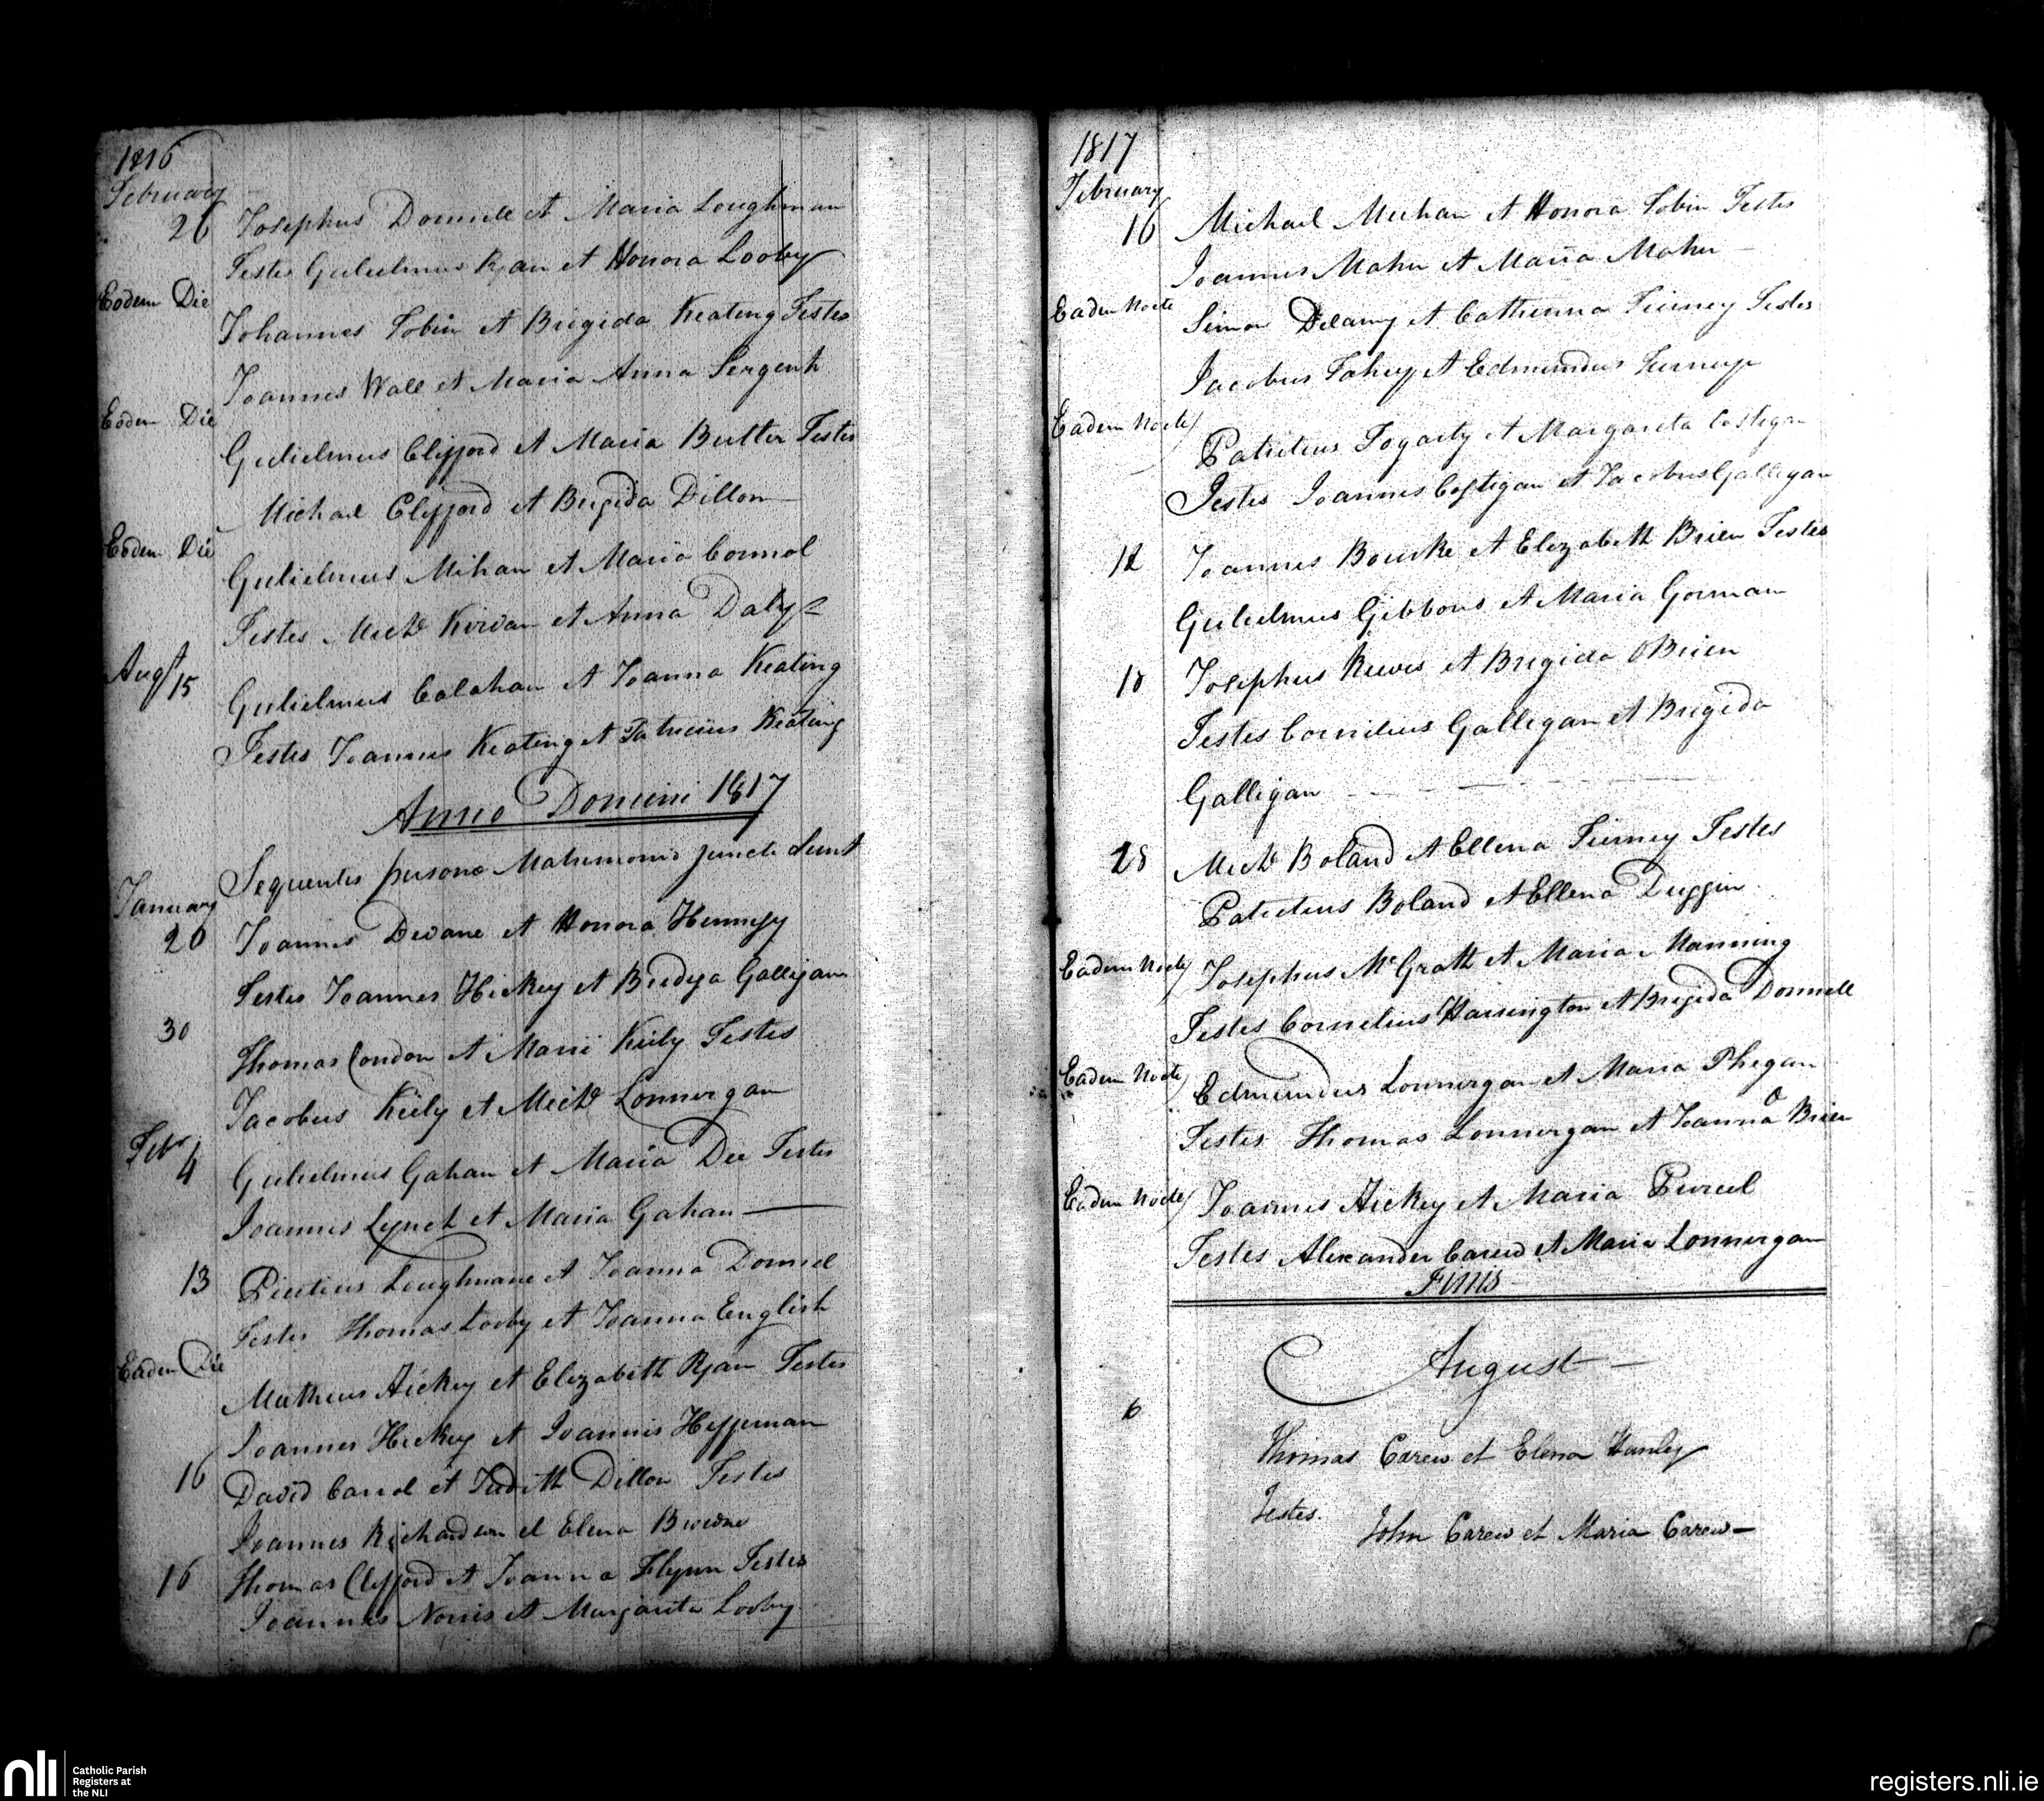 1816
February
26 Josephus Donnell et Maria Loughman
Testes Gulielmus Ryan et Honora Looby
Eodem Die
Johannes Tobin et Brigida Keating Testes
Joannes Wall et Maria Anna Sergent
Eodem Die
Gulielmus Clifford et Maria Butler Testes
Michael Clifford et Brigida Dillon
Eodem Die
Gulielmus Mihan et Maria Connol
Testes Michl Kirwan et Anna Daly
Augt 15 Gulielmus Calahan et Joanna Keating
Testes Joannes Keating et Patricius Keating
Anno Domini 1817
Sequentes persone Matrimonio juncti sunt
January
20 Joannes Devane et Honora Hennesy
Testes Joannes Hickey et Bridga Galligan
30
Thomas Condon et Marii Kiely Testes
Jacobus Kiely et Michl Lonnergan
Febr 4 Gulielmus Gahan et Maria Dee Testes
Joannes Lynch et Maria Gahan
13 Loughnane et Joanna Donnel
Testes Thomas Looby et Joanna English
Eadem Die
Matheus Hickey et Elizabeth Ryan Testes
Joannes Hickey et Joannis Heffernan
16 David Carrol et Judith Dillon Testes
Joannes Richardson et Elena Browne
16 Thomas Clifford et Joanna Flynn Testes
Joannes Norris et Margarita Looby
1817
February
16 Michael Meehan et Honora Tobin Testes
Joannes Maher et Maria Maher
Eadem Nocte Simon Delany et Catherina Tierney Testes
Jacobus Fahey et Edmundus Tierney
Eadem Nocte
Patritius Fogarty et Margareta Costigan
Testes Joannes Costigan et Jacobus Galligan
12 Joannes Bourke et Elizabeth Brien Testes
Gulielmus Gibbons et Maria Gorman
18 Josephus Reeves et Brigida OBrien
Testes Cornelius Galligan et Brigida
Galligan
28 Michl Boland et Ellena Tierney Testes
Patritius Boland et Ellena Duggin
Eadem Nocte Josephus McGrath et Maria Manning
Testes Cornelius Harrington et Brigida Donnell
Eadem Nocte Edmundus Lonnergan et Maria Phegan
Testes Thomas Lonnergan et Joanna O Brien
Eadem Nocte Joannes Hickey et Maria Purcel
Testes Alexander Carew et Maria Lonnergan
Finis
August
6
Thomas Carew et Elena Hanley
Testes.
John Carew et Maria Carew
nli
Catholic Parish
Registers at
the NLI
registers.nli.ie